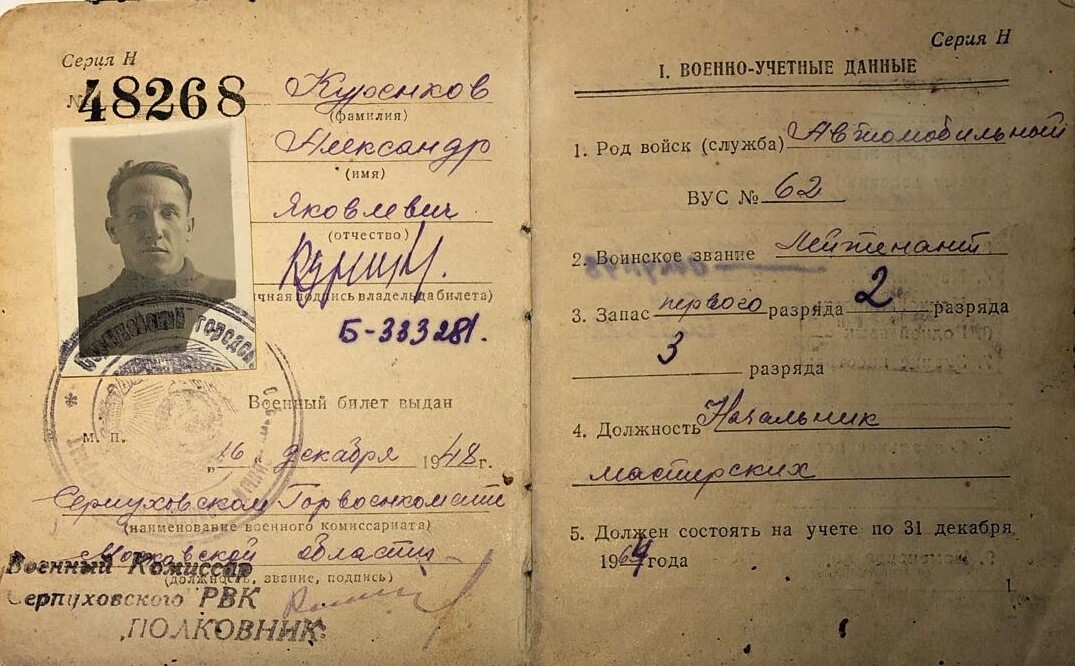 Серия Н
№ 48268
Курсиков
(фамилия)
Александр
(имя)
Яковлевич
(отчество)
личная подпись владельца билета)
Б-333281.
Военный билет выдан
м. п.
„16 декабря 1948 г.
Серпуховском Горвоенкомате
(наименование военного комиссариата)
Московской области
(должность, звание, подпись)
Военный Комиссар
Серпуховского РВК
ПОЛКОВНИК:
Серия Н
I. ВОЕННО-УЧЕТНЫЕ ДАННЫЕ
1. Род войск (служба) Автомобильный
ВУС № 62
2. Воинское звание Лейтенант
3. Запас первого разряда 2 разряда
3 разряда
4. Должность Начальник
мастерских
5. Должен состоять на учете по 31 декабря
1964 года
1.